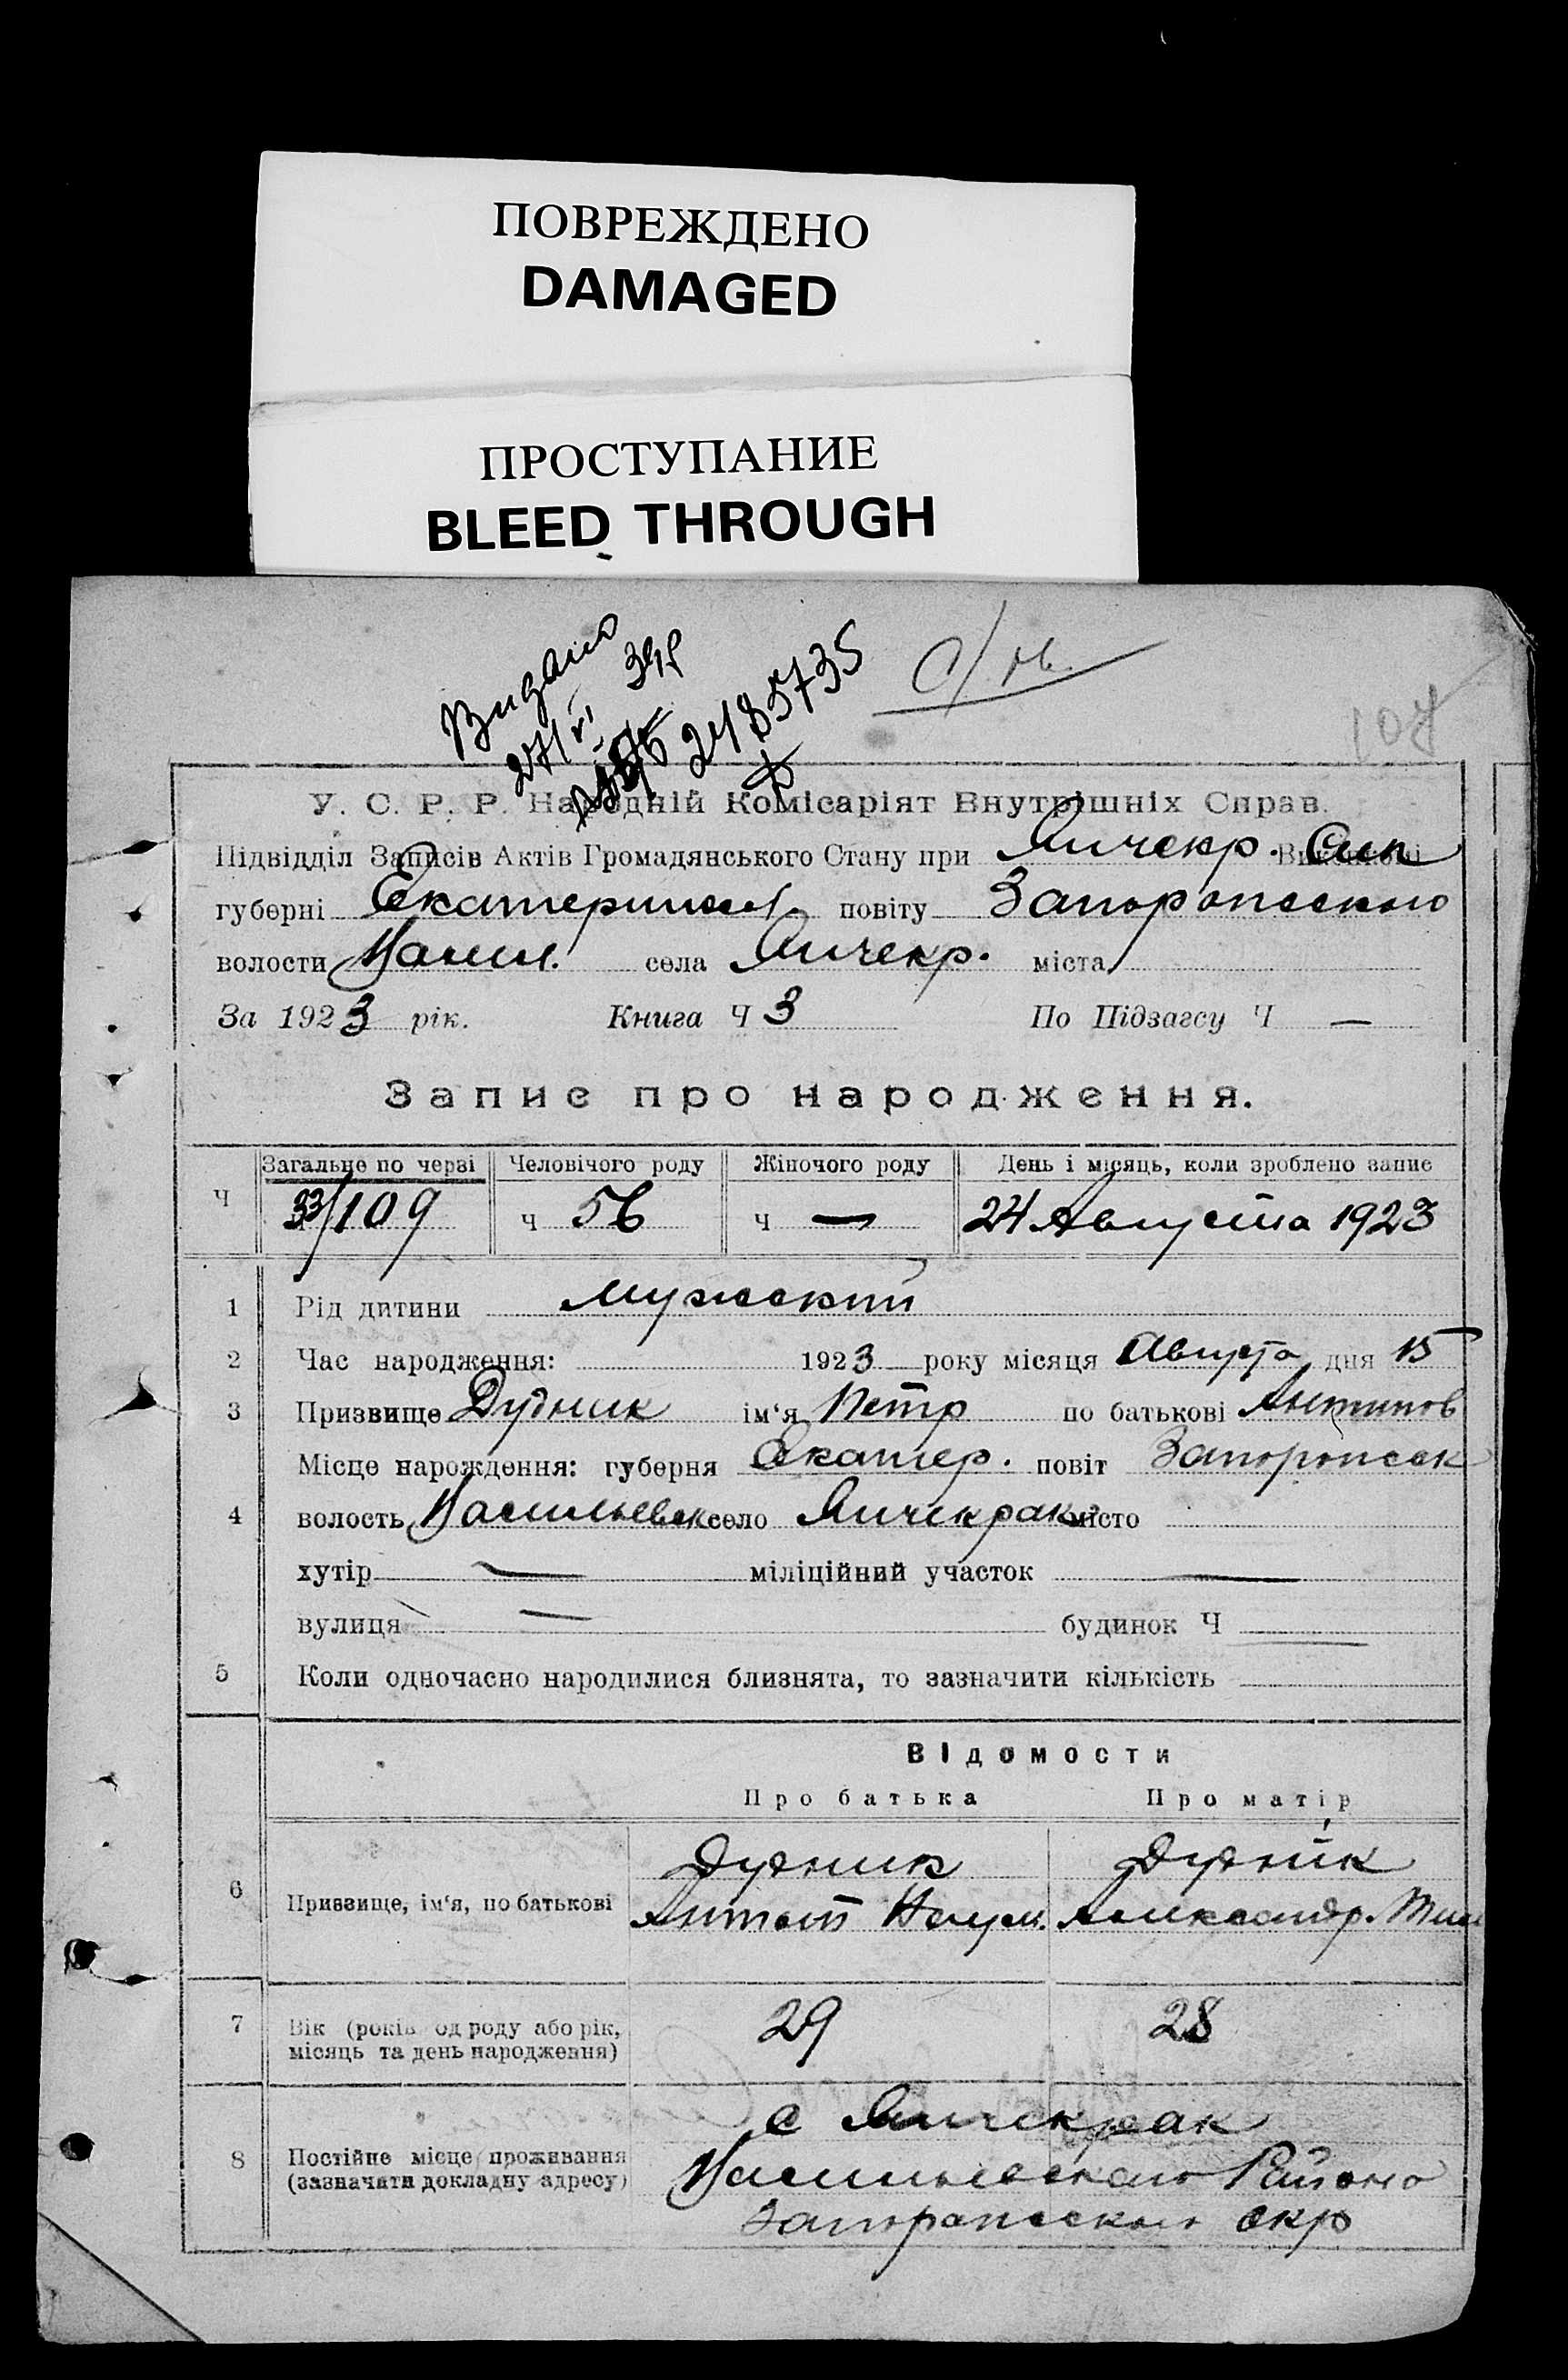 ПОВРЕЖДЕНО
DAMAGED
ПРОСТУПАНИЕ
BLEED THROUGH
Видано
2485735
107
У. С. Р. Р. Народній Комісаріят Внутрішніх Справ.
Підвідділ Записів Актів Громадянського Стану при Янчекр.
губерні Екатериносл. повіту Запорожского
волости Васил. села Янчекр. міста
За 1923 рік. Книга Ч 3 По Підзагсу Ч —
Запис про народження.
Ч Загальне по черві Человічого роду Жіночого роду День і місяць, коли зроблено запис
33/109 Ч 56 Ч — 24 Августа 1923
1 Рід дитини мужский
2 Час народження: 1923 року місяця Августа дня 15
3 Призвище Дудник ім‘я Петр по батькові Антонов
Місце нарождення: губерня Екатер. повіт Запорожск
4 волость Васильевск село Янчекрак місто
хутір — міліційний участок —
вулиця — будинок Ч —
5 Коли одночасно народилися близнята, то зазначити кількість
Відомости
Про батька Про матір
Дудник Дудник
6 Призвище, ім‘я, по батькові Антон Наум. Александр. Тим
7 Вік (років од роду або рік, 29 28
місяць та день народження)
с Янчекрак
8 Постійне місце проживання Васильевского Района
(зазначити докладну адресу) Запорожского окр